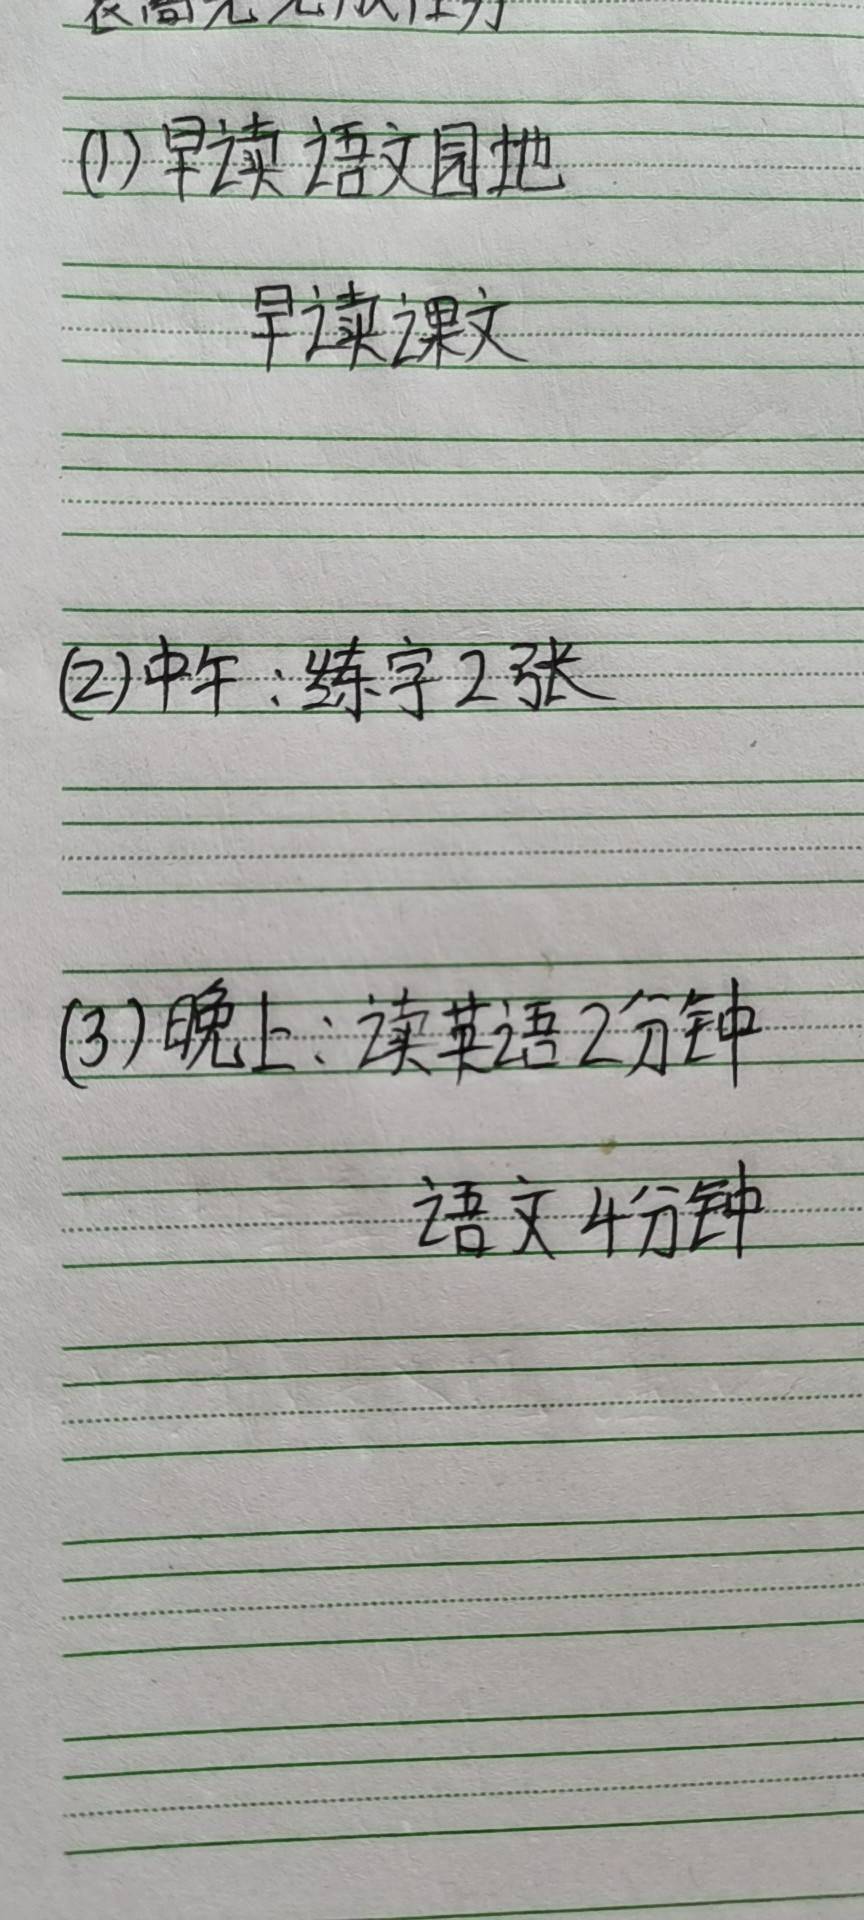 (1) 早读 语文园地
早读课文
(2) 中午：练字2张
(3) 晚上：读英语2分钟
语文4分钟